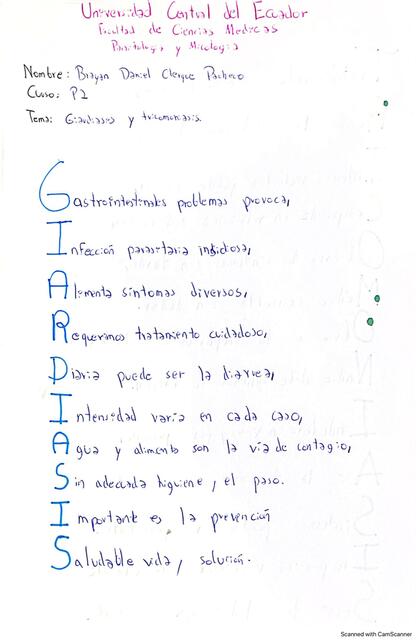 Universidad Central del Ecuador
Facultad de Ciencias Medicas
Parasitologia y Micologia
Nombre: Brayan Daniel Clerque Pacheco
Curso: P2
Tema: Giardiasis y tricomoniasis.
Gastrointestinales problemas provoca,
Infección parasitaria insidiosa,
Alimenta síntomas diversos,
Requerimos tratamiento cuidadoso,
Diaria puede ser la diarrea,
Intensidad varía en cada caso,
Agua y alimento son la vía de contagio,
Sin adecuada higiene, el paso.
Importante es la prevención
Saludable vida, solución.
Scanned with CamScanner